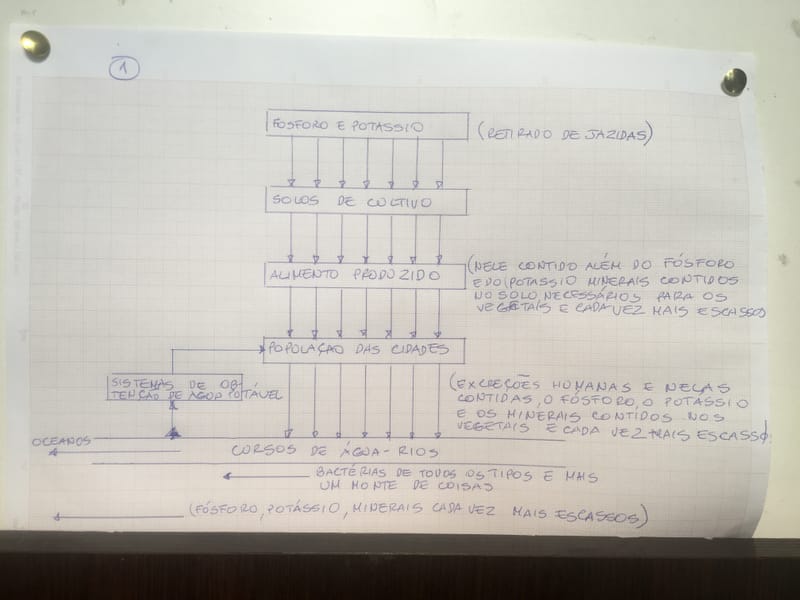 1
FÓSFORO E POTÁSSIO
(RETIRADO DE JAZIDAS)
SOLOS DE CULTIVO
ALIMENTO PRODUZIDO
(NELE CONTIDO ALÉM DO FÓSFORO
E DO POTASSIO MINERAIS CONTIDOS
NO SOLO, NECESSÁRIOS PARA OS
VEGETAIS E CADA VEZ MAIS ESCASSOS
POPULAÇÃO DAS CIDADES
SISTEMAS DE OB-
TENÇÃO DE ÁGUA POTÁVEL
(EXCREÇÕES HUMANAS E NELAS
CONTIDAS, O FÓSFORO, O POTÁSSIO
E OS MINERAIS CONTIDOS NOS
VEGETAIS E CADA VEZ MAIS ESCASSO
OCEANOS
CURSOS DE ÁGUA-RIOS
BACTÉRIAS DE TODOS OS TIPOS E MAIS
UM MONTE DE COISAS
(FÓSFORO, POTÁSSIO, MINERAIS CADA VEZ MAIS ESCASSOS)